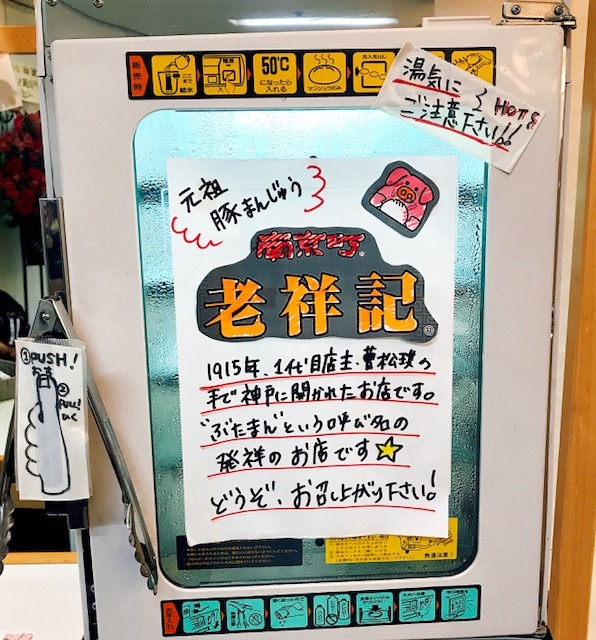 販売時
ここまで給水
電源
入
50℃
になったら
入れる
マンジュウのみ
先入先出し
湯気に HOT
ご注意下さい!!
元祖
豚まんじゅう
南京町
老祥記
1915年、1代目店主・曹松琪の
手で神戸に開かれたお店です。
"ぶたまん"という呼び名の
発祥のお店です☆
どうぞ、お召し上がり下さい!
①PUSH!
おす
②
PULL!
ひく
熱湯注意!
お手入れ